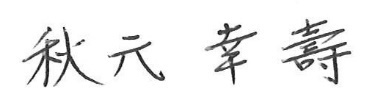 秋元 幸壽